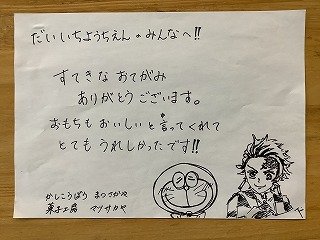 だいいちようちえんのみんなへ!!
すてきな おてがみ
ありがとうございます。
おもちも おいしいと言ってくれて
とても うれしかったです!!
かしこうぼう まつさかや
菓子工房 マツサカヤ